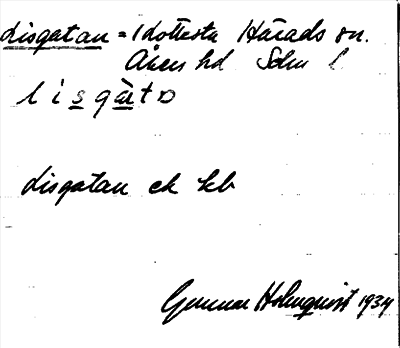 Lisgatan = Idottesta Härads sn.
Åkers hd Sdm l
l i s g à t ɒ
Lisgatan ek kb
Gunnar Holmquist 1934